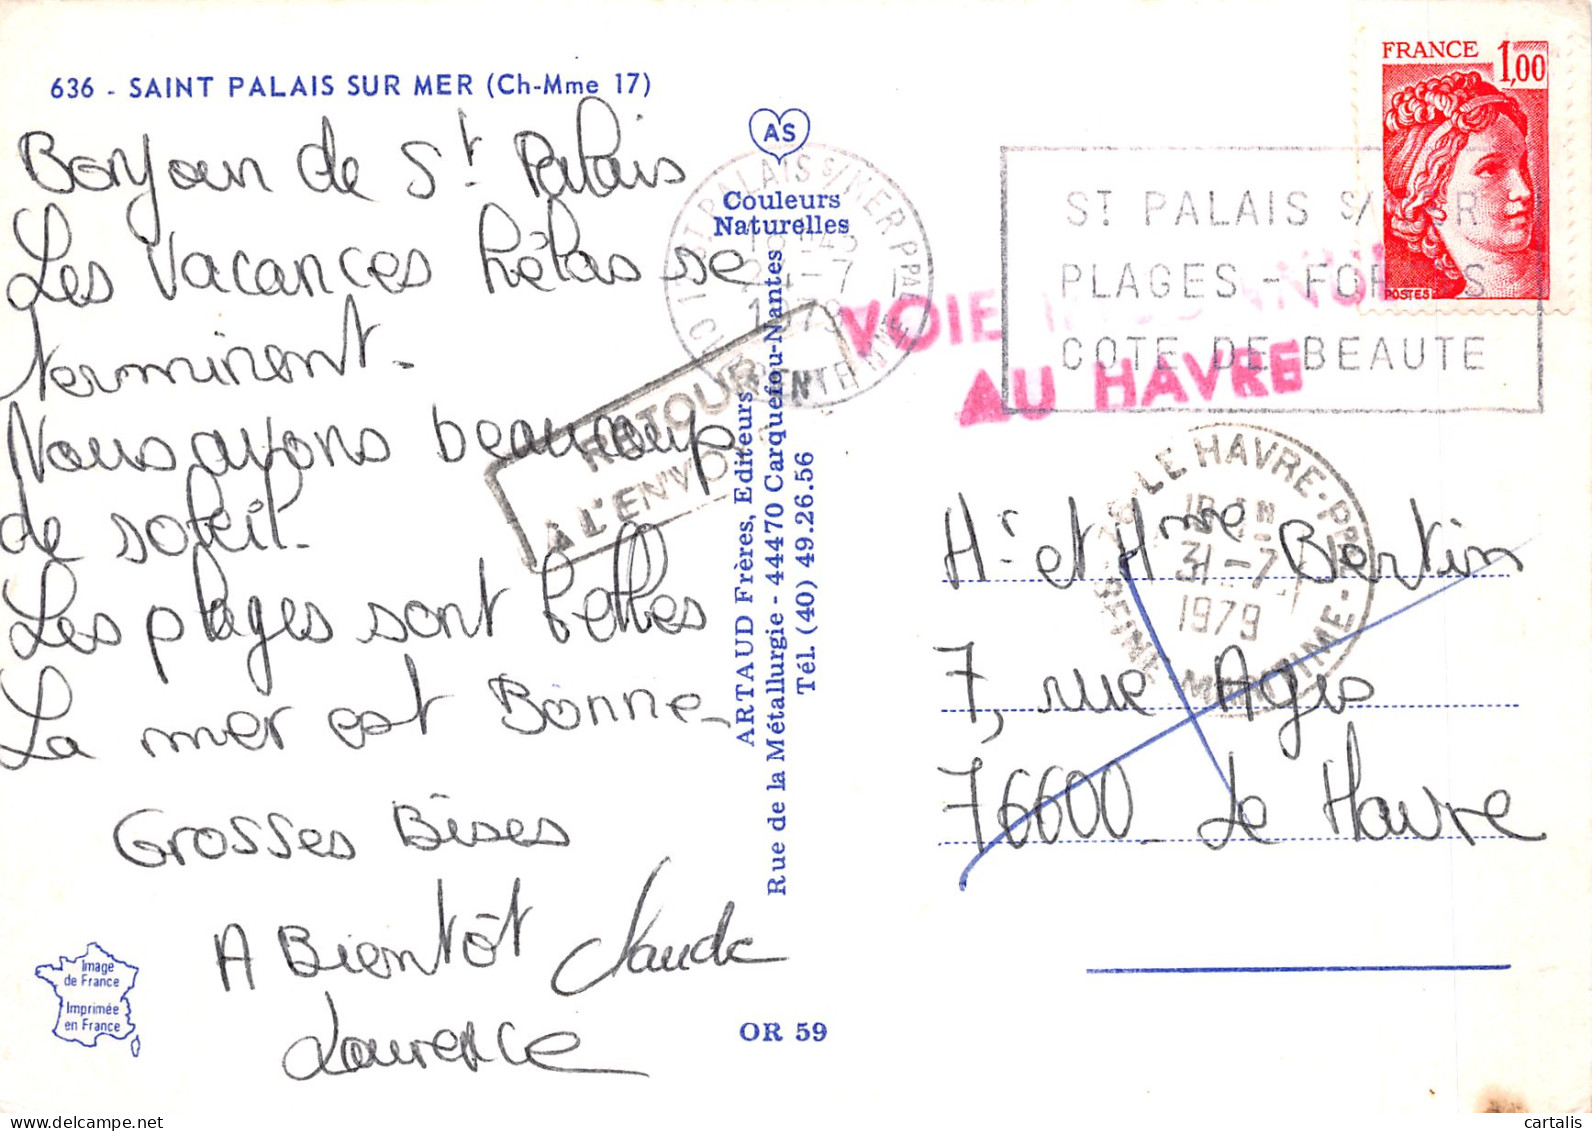 636 - SAINT PALAIS SUR MER (Ch-Mme 17)
Bonjour de St Palais
Les Vacances hélas se
terminent.
Nous avons beaucoup
de soleil.
Les plages sont belles
La mer est Bonne
Grosses Bises
A Bientôt Claude
Laurence
Image
de France
Imprimée
en France
AS
Couleurs
Naturelles
ARTAUD Frères, Editeurs
Rue de la Métallurgie - 44470 Carquefou-Nantes
Tél. (40) 49.26.56
OR 59
ST PALAIS S/MER PPAL
24-7
1979
CHARENTE MME
RETOUR
A L'ENVOYEUR
VOIE INCONNUE
AU HAVRE
ST PALAIS S/MER
PLAGES - FORETS
COTE DE BEAUTE
FRANCE 1,00
POSTES
76 - LE HAVRE - PPAL
31-7
1979
SEINE - MARITIME
Mr et Mme Bertin
7, rue Agis
76600 - Le Havre
cartalis